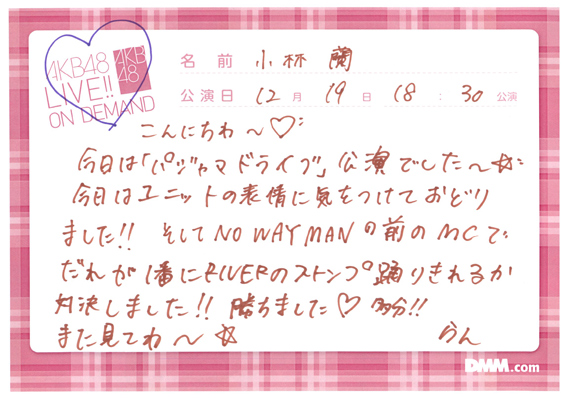 AKB48
LIVE!!
ON DEMAND
AKB
48
名前 小林 蘭
公演日 12月 19日 18:30 公演
こんにちわ〜♡
今日は「パジャマドライブ」公演でした〜☆
今日はユニットの表情に気をつけておどり
ました!! そしてNO WAY MANの前のMCで
だれが1番にRIVERのストンプ踊りきれるか
対決しました!! 勝ちました♡ 多分!!
また見てね〜☆ らん
DMM.com